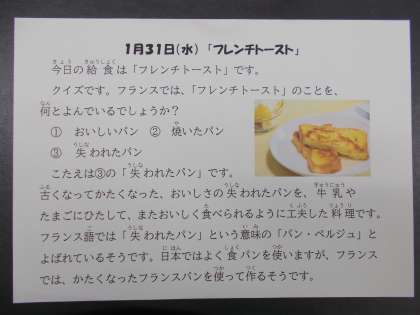 1月31日(水)「フレンチトースト」
今日の給食は「フレンチトースト」です。
クイズです。フランスでは、「フレンチトースト」のことを、
何とよんでいるでしょうか?
① おいしいパン ② 焼いたパン
③ 失われたパン
こたえは③の「失われたパン」です。
古くなってかたくなった、おいしさの失われたパンを、牛乳や
たまごにひたして、またおいしく食べられるように工夫した料理です。
フランス語では「失われたパン」という意味の「パン・ペルジュ」と
よばれているそうです。日本ではよく食パンを使いますが、フランス
では、かたくなったフランスパンを使って作るそうです。